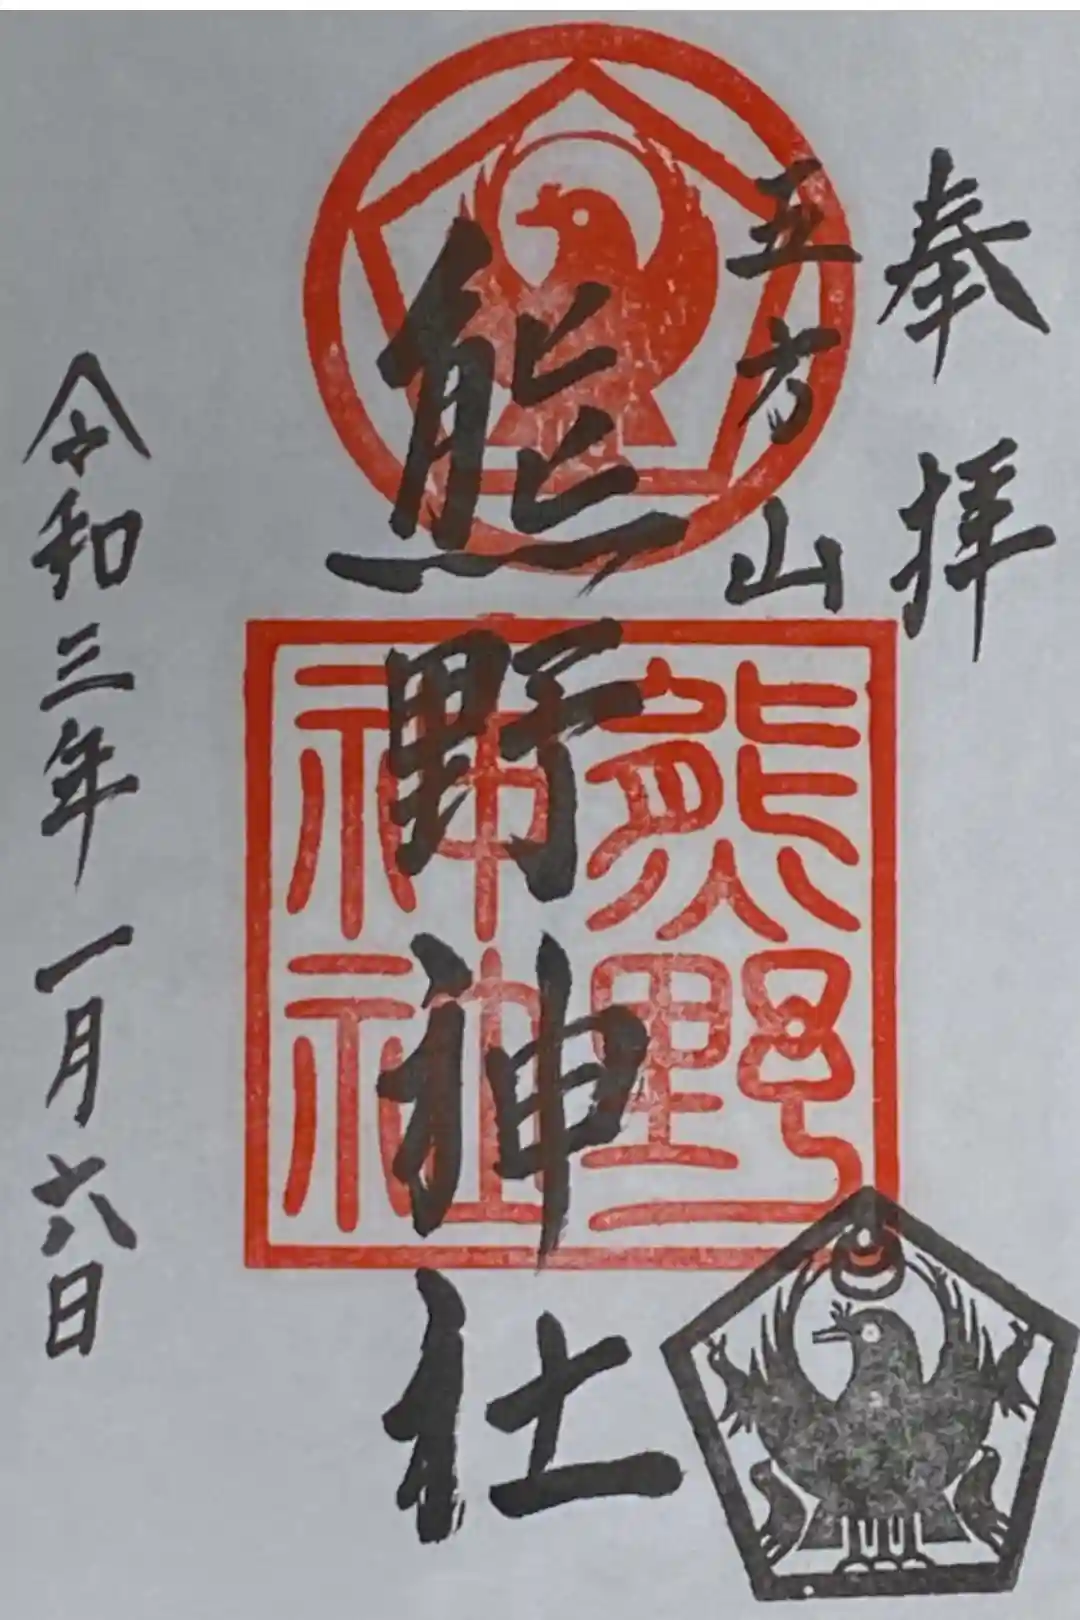 奉拝
五方山
熊野神社
熊野
神社
令和三年一月六日